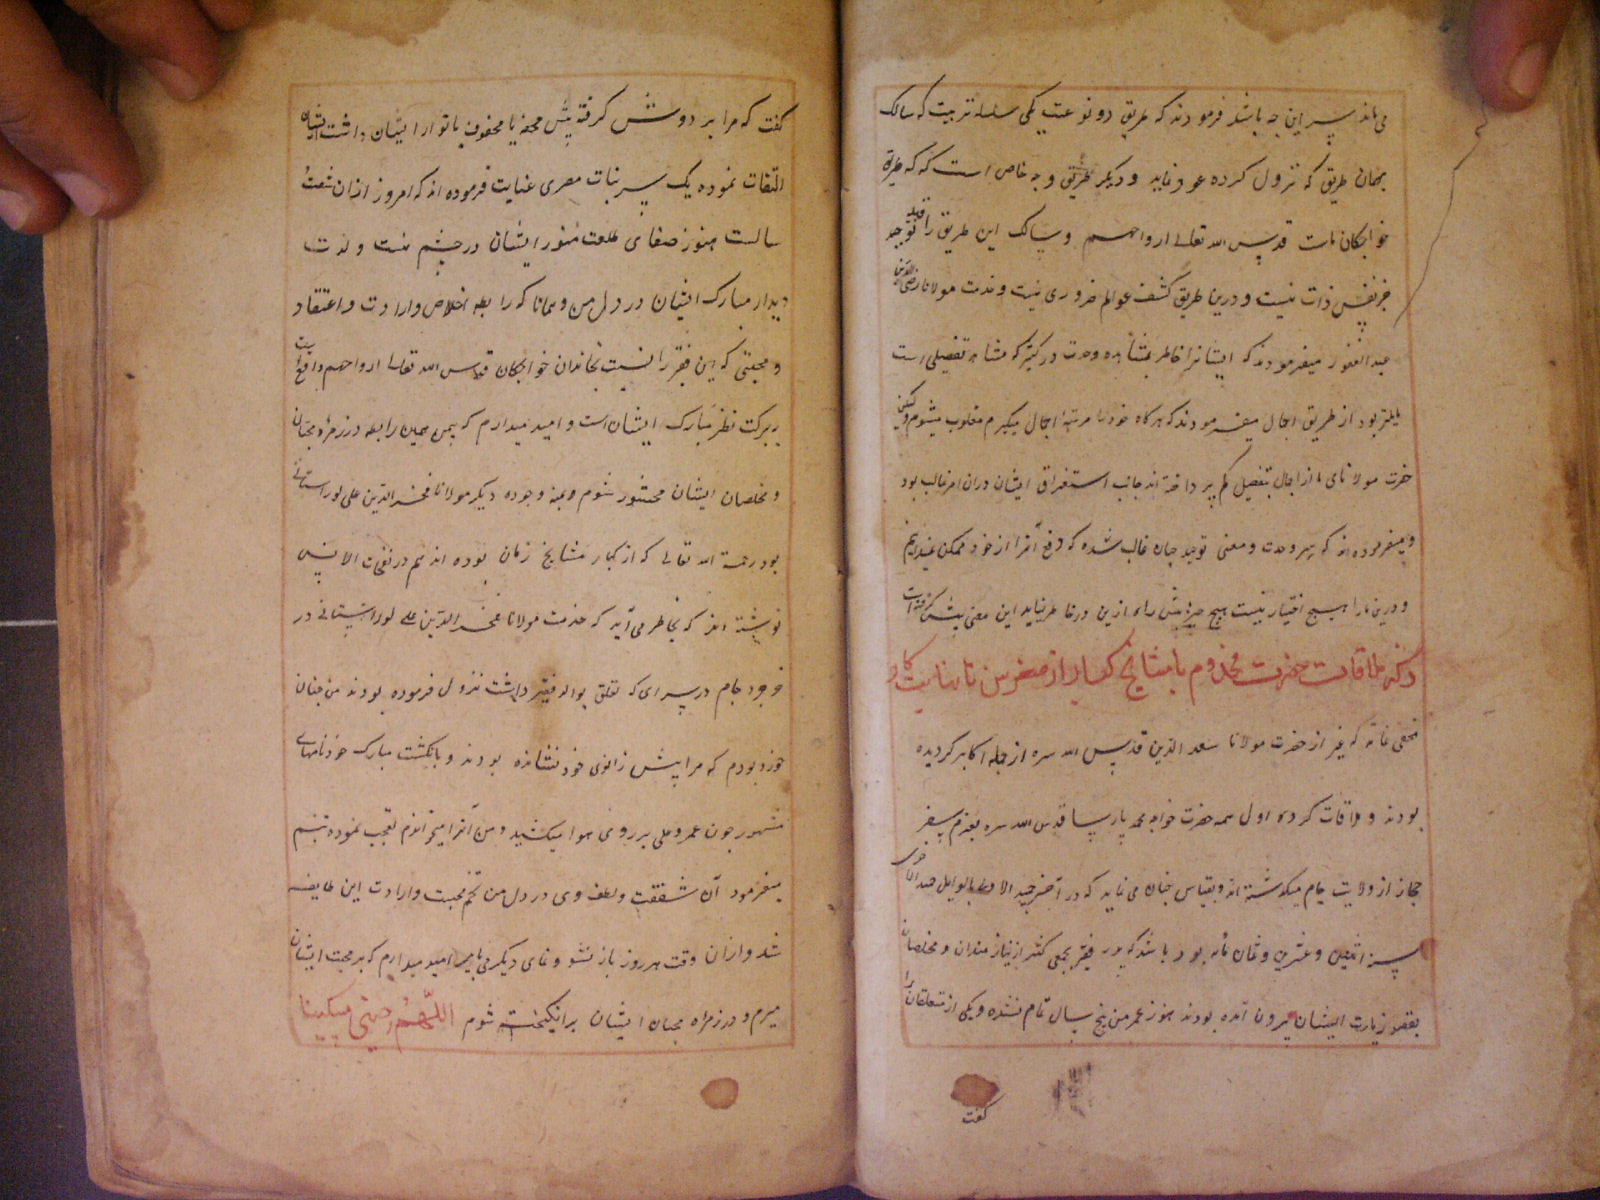 می‌ماند پس این چه باشد فرمودند که طریق دو نوعست یکی سلسله تربیت که سالک
بهمان طریق که نزول کرده عود نماید و دیگر طریق وجه خاص است که که طریقه
خواجکان ماست قدس الله تعالی ارواحهم و سالک این طریق را قبله توجه
جز نفس ذات نیست و درین طریق کشف عوالم ضروری نیست و خدمت مولانا رضی الدین
عبد الغفور میفرمودند که ایشانرا خاطر بمشاهده وحدت در کثرت که مشاهده تفصیلی است
مایلتر بود از طریق اجمال میفرمودند که هرکاه خود را مرتبهٔ اجمال میکیرم مغلوب میشوم ولیکن
حضرت مولانای ما از اجمال بتفصیل کم پرداخته اند جانب استغراق ایشان دران امر غالب بود
و میفرموده اند که سر وحدت و معنی توحید چنان غالب شده که دفع آنرا از خود ممکن نمیدانیم
و درین ما را هیچ اختیار نیست هیچ چیز پیش راه ازین در خاطر نیاید این معنی پیش
ذکر ملاقات حضرت مخدوم با مشایخ کبار از صغر سن تا نهایت کار
مخفی نماند که غیر از حضرت مولانا سعد الدین قدس الله سره از جمله اکابر که دیده
بودند و ملاقات کرده اول همه حضرت خواجه محمد پارسا قدس الله سره بعزم سفر
حجاز از ولایت جام میکذشته اند و بقیاس چنان می نماید که در آخر جمید الاولی یا اوایل جمید الاخری
سنه اثنین و عشرین و ثمان مائه بود باشد که پدر فقیر بجمعی کثیر از نیازمندان و مخلصان
بقصد زیارت ایشان بیرون آمده بودند هنوز عمر من پنج سال تمام نشده و یکی از متعلقان را
کفت
کفت که مرا بر دوش کرفته پیش محفهٔ با محفوف بانوار ایشان داشت ایشان
التفات نموده یک سیر نبات مصری عنایت فرموده اند که امروز ازان شصت
سالست هنوز صفای طلعت منور ایشان در چشم منست و لذت
دیدار مبارک ایشان در دل من و همانا که رابطه اخلاص و ارادت و اعتقاد
و محبتی که این فقیر را نسبت بخاندان خواجکان قدس الله تعالی ارواحهم واقع است
ببرکت نظر مبارک ایشان است و امید میدارم که بیمن همین رابطه در زمرهٔ محبان
و مخلصان ایشان محشور شوم و بمنه وجوده دیکر مولانا فخر الدین علی لورستانی
بود رحمة الله تعالی که از کبار مشایخ زمان بوده اند هم در نفحات الانس
نوشته اند که بخاطر می آید که خدمت مولانا فخر الدین علی لورستانی در
خرجرد جام در سرای که تعلق بوالد فقیر داشت نزول فرموده بودند من چنان
خورد بودم که مرا پیش زانوی خود نشانده بودند و بانکشت مبارک خود نامهای
مشهور چون عمر و علی بر روی هوا میکشید و من آنرا میخواندم تعجب نموده تبسم
میفرمود آن شفقت و لطف وی در دل من تخم محبت و ارادت این طایفه
شد و ازان وقت هر روز باز نشو و نمای دیکر می یابد امید میدارم که بر محبت ایشان
میرم و در زمره محبان ایشان برانکیخته شوم اللهم احینی مسکینا